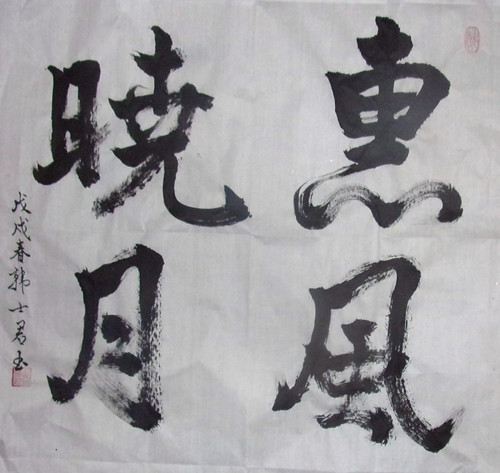 惠風
曉月
戊戌春韩士君